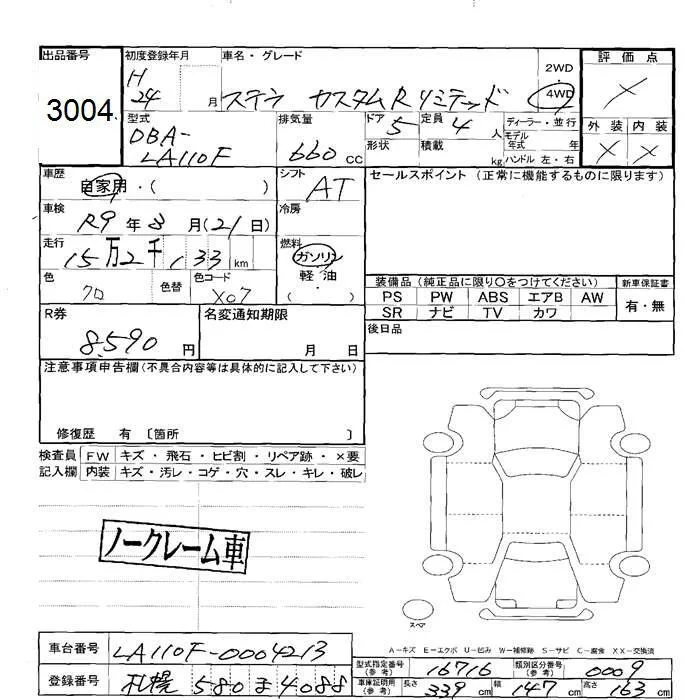 出品番号 初度登録年月 車名・グレード 評価点
3004 H 24 月 ステラ カスタムRリミテッド 2WD 4WD ×
型式 排気量 ドア 定員 ディーラー・並行 外装 内装
DBA-LA110F 660 cc 5 4 人 モデル年式 年
形状 積載 kg ハンドル 左・右 × ×
車歴 シフト セールスポイント（正常に機能するものに限ります）
自家用・（ ） AT
車検 冷房
R9 年 8 月（21日）
走行 燃料
15万2千133 km ガソリン
色 色替 色コード 軽・油 装備品（純正品に限り○をつけてください） 新車保証書
クロ X07 （ ） PS PW ABS エアB AW 有・無
SR ナビ TV カワ
R券 名変通知期限 後日品
8,590 円 月 日
注意事項申告欄（不具合内容等は具体的に記入して下さい）
修復歴 有 〔箇所 〕
検査員 FW キズ・飛石・ヒビ割・リペア跡・×要
記入欄 内装 キズ・汚レ・コゲ・穴・スレ・キレ・破レ
ノークレーム車
スペア
A－キズ E－エクボ U－凹み W－補修跡 S－サビ C－腐食 XX－交換済
車台番号 LA110F-0004213 型式指定番号（参考） 16716 類別区分番号（参考） 0009
登録番号 札幌 580 ま 4088 車庫証明用（参考） 長さ 339 cm 幅 147 cm 高さ 63 cm